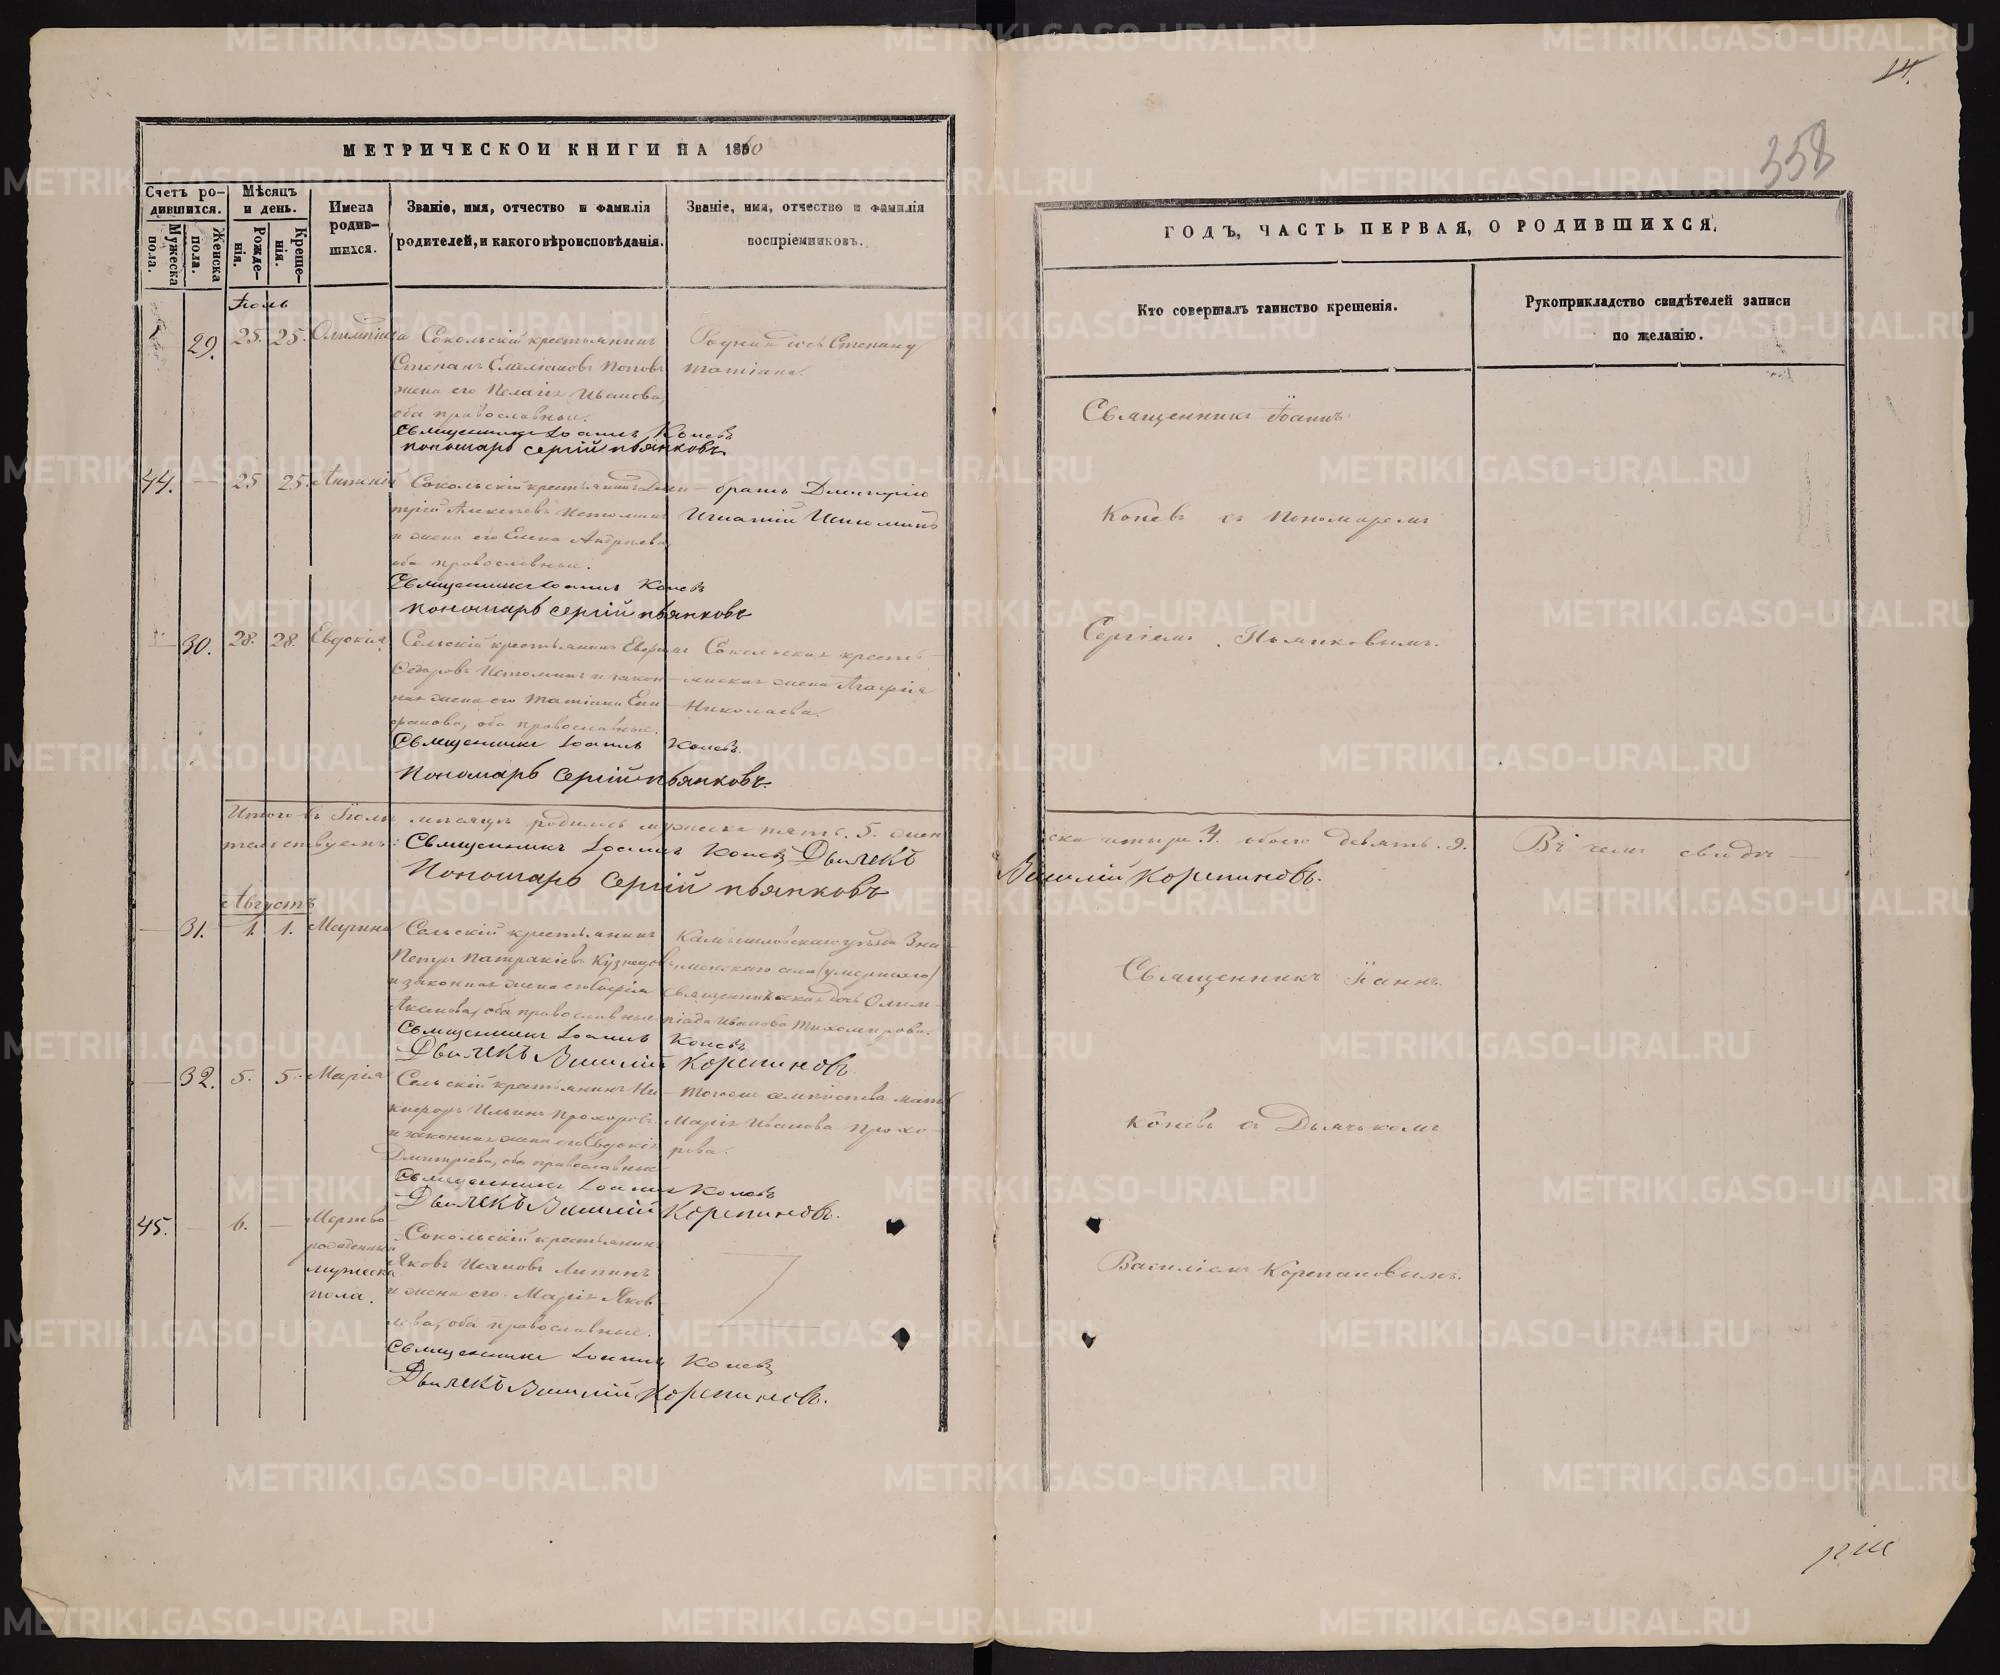 14.
358
МЕТРИЧЕСКОЙ КНИГИ НА 1860
Счетъ ро-
дившихся.
Мужеска пола.
Женска пола.
Мѣсяцъ
и день.
Рожде-
нія.
Креще-
нія.
Имена
родив-
шихся.
Званіе, имя, отчество и фамилія
родителей, и какого вѣроисповѣданія.
Званіе, имя, отчество и фамилія
воспріемниковъ.
Іюль
29. 25. 25. Олимпіада
Сокольскій крестьянинъ
Степанъ Емельяновъ Поповъ
жена его Пелагія Иванова,
оба православные.
Степану
Татіана.
Священникъ Іоаннъ Коневъ
Пономарь Сергій Пьянковъ
44. — 25 25. Антоній
Сокольскій крестьянинъ Дми-
трій Алексѣевъ Истоминъ
и жена его Елена Андреева
оба православные.
братъ Дмитрію
Игнатій Истоминъ
Священникъ Іоаннъ Коневъ
Пономарь Сергій Пьянковъ
— 30. 28. 28. Евдокія
Сельскій крестьянинъ
Федоровъ Истоминъ и закон-
ная жена его Татіана Епи-
фанова, оба православные.
Сокольская кресть-
янская жена Агафія
Николаева.
Священникъ Іоаннъ Коневъ.
Пономарь Сергій Пьянковъ.
Итого въ Іюлѣ мѣсяцѣ родилось мужеска пять. 5. жен
тельствуемъ: Священникъ Іоаннъ Коневъ Дьячекъ
Пономарь Сергій Пьянковъ
Августъ
— 31. 1. 1. Марина
Сельскій крестьянинъ
Петръ Патракіевъ Кузнецовъ
и законная жена его Софія
Аксенова, оба православные
Камышловскаго уѣзда Зна-
менскаго села (умершаго)
священническая дочь Олим-
піада Иванова Тихомирова.
Священникъ Іоаннъ Коневъ
Дьячекъ Василій Корепановъ.
— 32. 5. 5. Марія
Сельскій крестьянинъ Ни-
кифоръ Ильинъ Прохоровъ
и законная жена его Евдокія
Дмитріева, оба православные
Тогоже семейства мать
Марія Иванова Прохо-
рова.
Священникъ Іоаннъ Коневъ
Дьячекъ Василій Корепановъ.
45. — 6. — Мертво-
рожденный
мужеска
пола.
Сокольскій крестьянинъ
Яковъ Ивановъ Липинъ
и жена его Марія Яков-
лева, оба православные.
Священникъ Іоаннъ Коневъ
Дьячекъ Василій Корепановъ.
ГОДЪ, ЧАСТЬ ПЕРВАЯ, О РОДИВШИХСЯ.
Кто совершалъ таинство крещенія.
Рукоприкладство свидѣтелей записи
по желанію.
Священникъ Іоаннъ
Коневъ съ Пономаремъ
Сергіемъ Пьянковымъ.
ска четыре 4. обоего девять. 9. Въ чемъ свидѣ-
Василій Корепановъ.
Священникъ Іоаннъ
Коневъ съ Дьячкомъ
Василіемъ Корепановымъ.